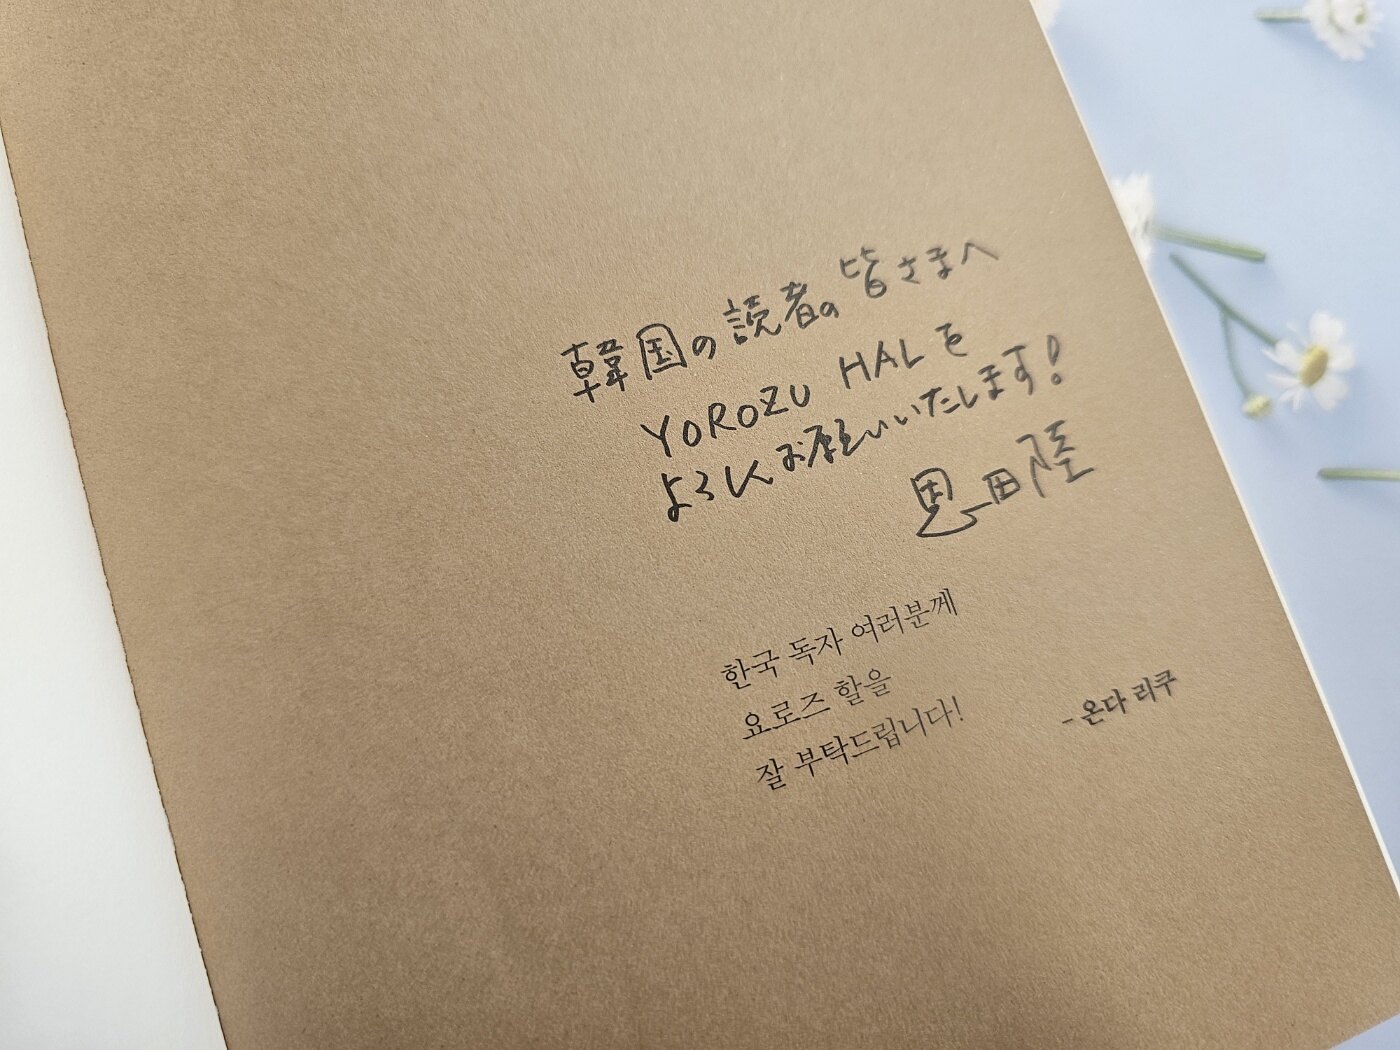 韓国の読者の皆さまへ
YOROZU HALを
よろしくお願いいたします!
恩田陸
한국 독자 여러분께
요로즈 할을
잘 부탁드립니다!
- 온다 리쿠